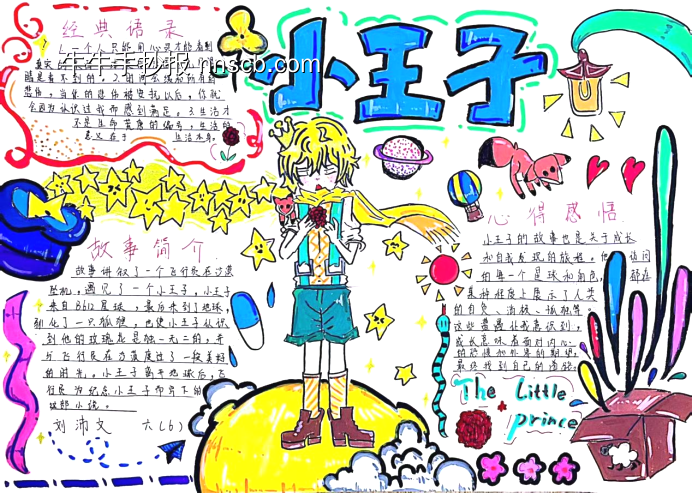 小王子
经典语录
1.一个人只能用心灵才能看到
重要
睛是看不到的。2.时间会缓和所有的
悲伤,当你的悲伤被安抚以后,你就
会因为认识过我而感到满足。3.生活才
不是生命荒唐的编号,生活的
意义在于 生活本身。
年年手抄报 nnscb.com
故事简介
故事讲叙了一个飞行员在沙漠
坠机,遇见了一个小王子,小王子
来自B612星球,最后来到了地球,
驯化了一只狐狸,也使小王子认识
到他的玫瑰花是独一无二的,并
与飞行员在沙漠度过了一段美好
的时光。小王子离开地球后,飞
行员为纪念小王子而写下的
这部小说。
刘沛文 六(6)
心得感悟
小王子的故事也是关于成长
和自我发现的旅程。他 访问
的每一个星球和角色,都在
某种程度上展示了人类
的自负、消极、孤独等
这些 让我意识到,
成长意味着面对内心
的恐惧和外界的期望,
最终找到自己的道路。
The Little
prince